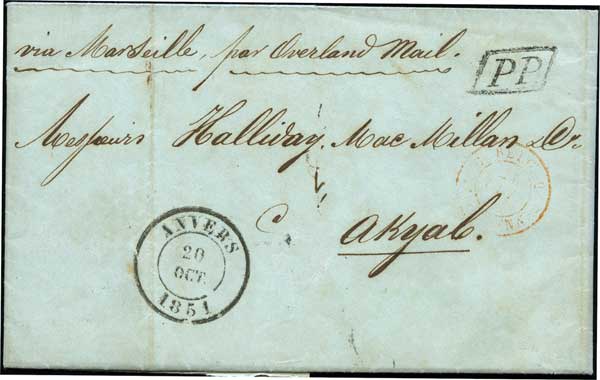 via Marseille, par Overland Mail.
PP
Messieurs Halliday, Mac Millan & Co.
Akyab.
ANVERS
20
OCT.
1851